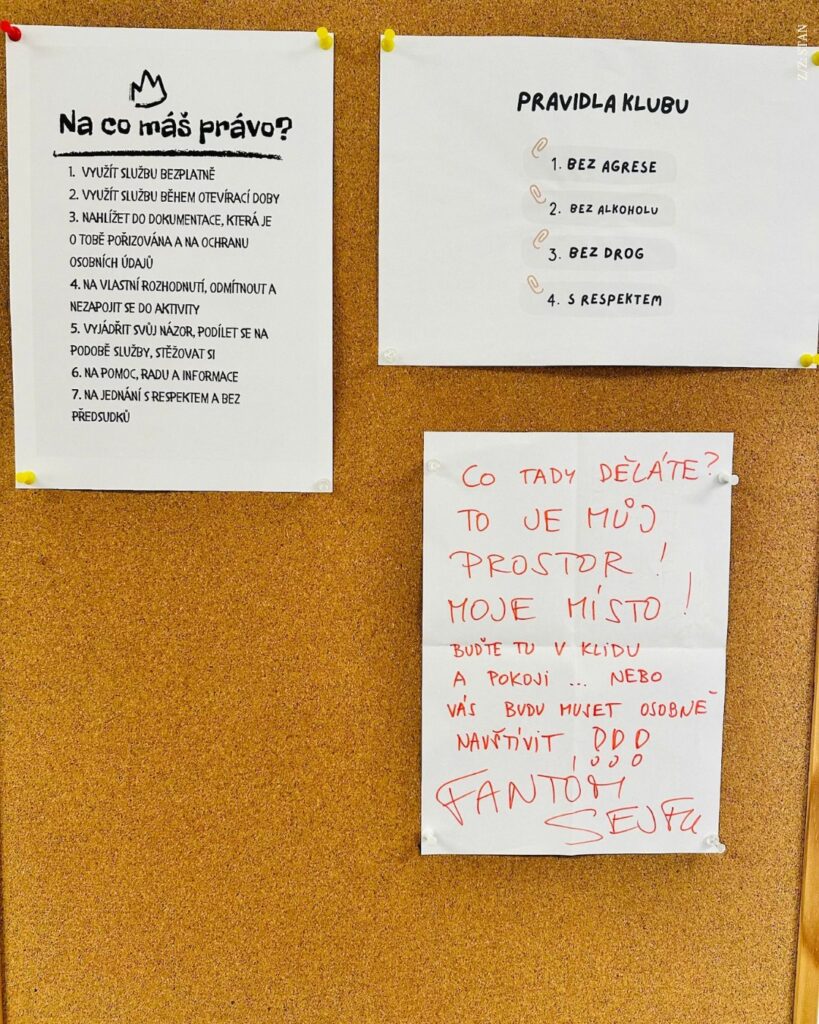 Na co máš právo?
1. VYUŽÍT SLUŽBU BEZPLATNĚ
2. VYUŽÍT SLUŽBU BĚHEM OTEVÍRACÍ DOBY
3. NAHLÍŽET DO DOKUMENTACE, KTERÁ JE
O TOBĚ POŘIZOVÁNA A NA OCHRANU
OSOBNÍCH ÚDAJŮ
4. NA VLASTNÍ ROZHODNUTÍ, ODMÍTNOUT A
NEZAPOJIT SE DO AKTIVITY
5. VYJÁDŘIT SVŮJ NÁZOR, PODÍLET SE NA
PODOBĚ SLUŽBY, STĚŽOVAT SI
6. NA POMOC, RADU A INFORMACE
7. NA JEDNÁNÍ S RESPEKTEM A BEZ
PŘEDSUDKŮ
PRAVIDLA KLUBU
1. BEZ AGRESE
2. BEZ ALKOHOLU
3. BEZ DROG
4. S RESPEKTEM
CO TADY DĚLÁTE?
TO JE MŮJ
PROSTOR!
MOJE MÍSTO!
BUĎTE TU V KLIDU
A POKOJI ... NEBO
VÁS BUDU MUSET OSOBNĚ
NAVŠTÍVIT !!!
FANTOM
SEJFU
Z Z STAN